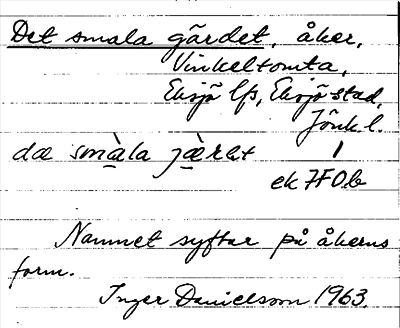 Det smala gärdet, åker,
Vinkeltomta,
Eksjö lfs, Eksjö stad,
Jönk l.
dæ smàla jæ̀rət 1
ek 7F0b
Namnet syftar på åkerns
form.
Inger Danielsson 1963.